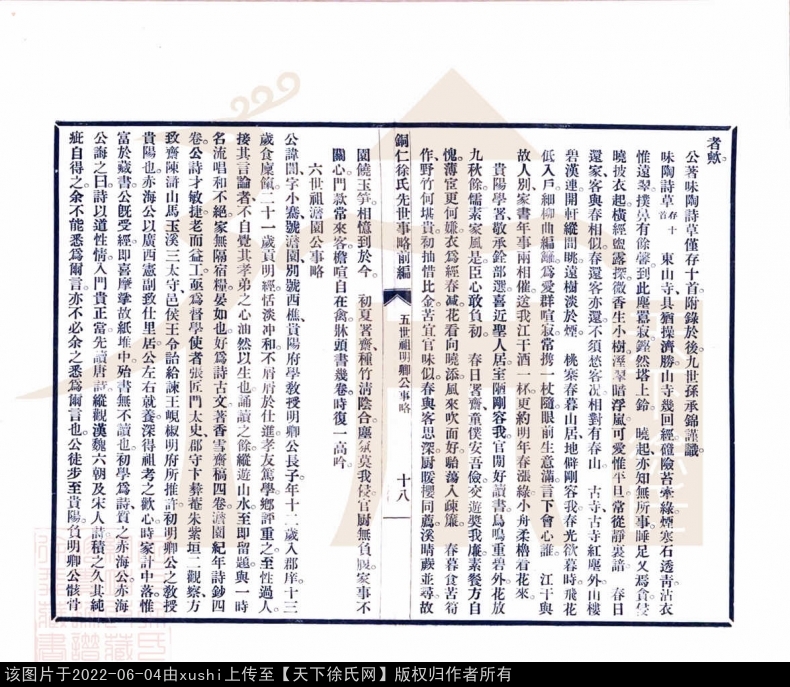 者歟
公著味陶詩草僅存十首附錄於後九世孫承錦謹識
味陶詩草存十首　東山寺 具猶操濟勝山寺幾回經磴險苔牽綠煙寒石透靑沾衣
惟遠翠撲鼻有餘馨到此塵囂寂鏗然塔上鈴　曉起 亦知無所事睡足又爲貪侵
曉披衣起橫經盥露探微香生小樹溼翠暗浮嵐可愛惟平旦常從靜裏諳　春日
還家 客與春相似春還客亦還不須愁客況相對有春山　古寺 古寺紅塵外山樓
碧漢連開軒縱間眺遠樹淡於煙　桃寨春暮 山居地僻剛容我春光欲暮時飛花
低入戶細柳曲編籬爲愛群喧寂常攜一杖隨眼前生意滿言下會心誰　江干與
故人別 家書年事兩相催送我江干酒一杯更約明年春漲綠小舟柔櫓看花來
貴陽學署 敬承銓部選喜近聖人居室陋剛容我官閒好讀書鳥鳴重碧外花放
九秋餘懦素家風是臣心敢負初　春日署齋 童僕安吾儉交遊獎我廉素餐方自
愧薄宦更何嫌衣爲經春減花看向曉添風來吹面好駘蕩入疎簾　春暮食苦筍
作 野竹何堪貴初抽惜比金苦宜官味似春與客思深厨暖櫻同薦溪晴蕨並尋故
銅仁徐氏先世事略前編　五世祖明卿公事略　十八
園饒玉笋相憶到於今　初夏署齋 種竹淸陰合塵氛莫我侵官厨無負腹家事不
關心門款常來客檐喧自在禽牀頭書幾卷時復一高吟
六世祖澹園公事略
公諱誾字小騫號澹園別號西樵貴陽府學敎授明卿公長子年十二歲入郡庠十三
歲食廩餼二十一歲貢明經恬淡沖和不屑屑於仕進孝友篤學鄉評重之至性過人
接其言論者不自覺其孝弟之心油然以生也誦讀之餘縱遊山水至即留題與一時
名流唱和不絕家無隔宿糧晏如也好爲詩古文著香雪齋稿四卷澹園紀年詩鈔四
卷公詩才敏捷老而益工亟爲督學使者張匠門太史郡守卞彝菴朱紫垣二觀察方
致齋陳滸山馬玉溪三太守邑侯王令詒給諫王蜆椒明府所推許初明卿公之敎授
貴陽也赤海公以廣西憲副致仕里居公左右就養深得祖考之歡心時家計中落惟
富於藏書公旣受經即喜摩挲故紙堆中殆書無不讀也初學爲詩質之赤海公赤海
公誨之曰詩以道性情入門貴正當先讀唐詩縱觀漢魏六朝及宋人詩積之久其純
疵自得之余不能悉爲爾言亦不必余之悉爲爾言也公徒步至貴陽負明卿公骸骨
该图片于2022-06-04由xushi上传至【天下徐氏网】版权归作者所有